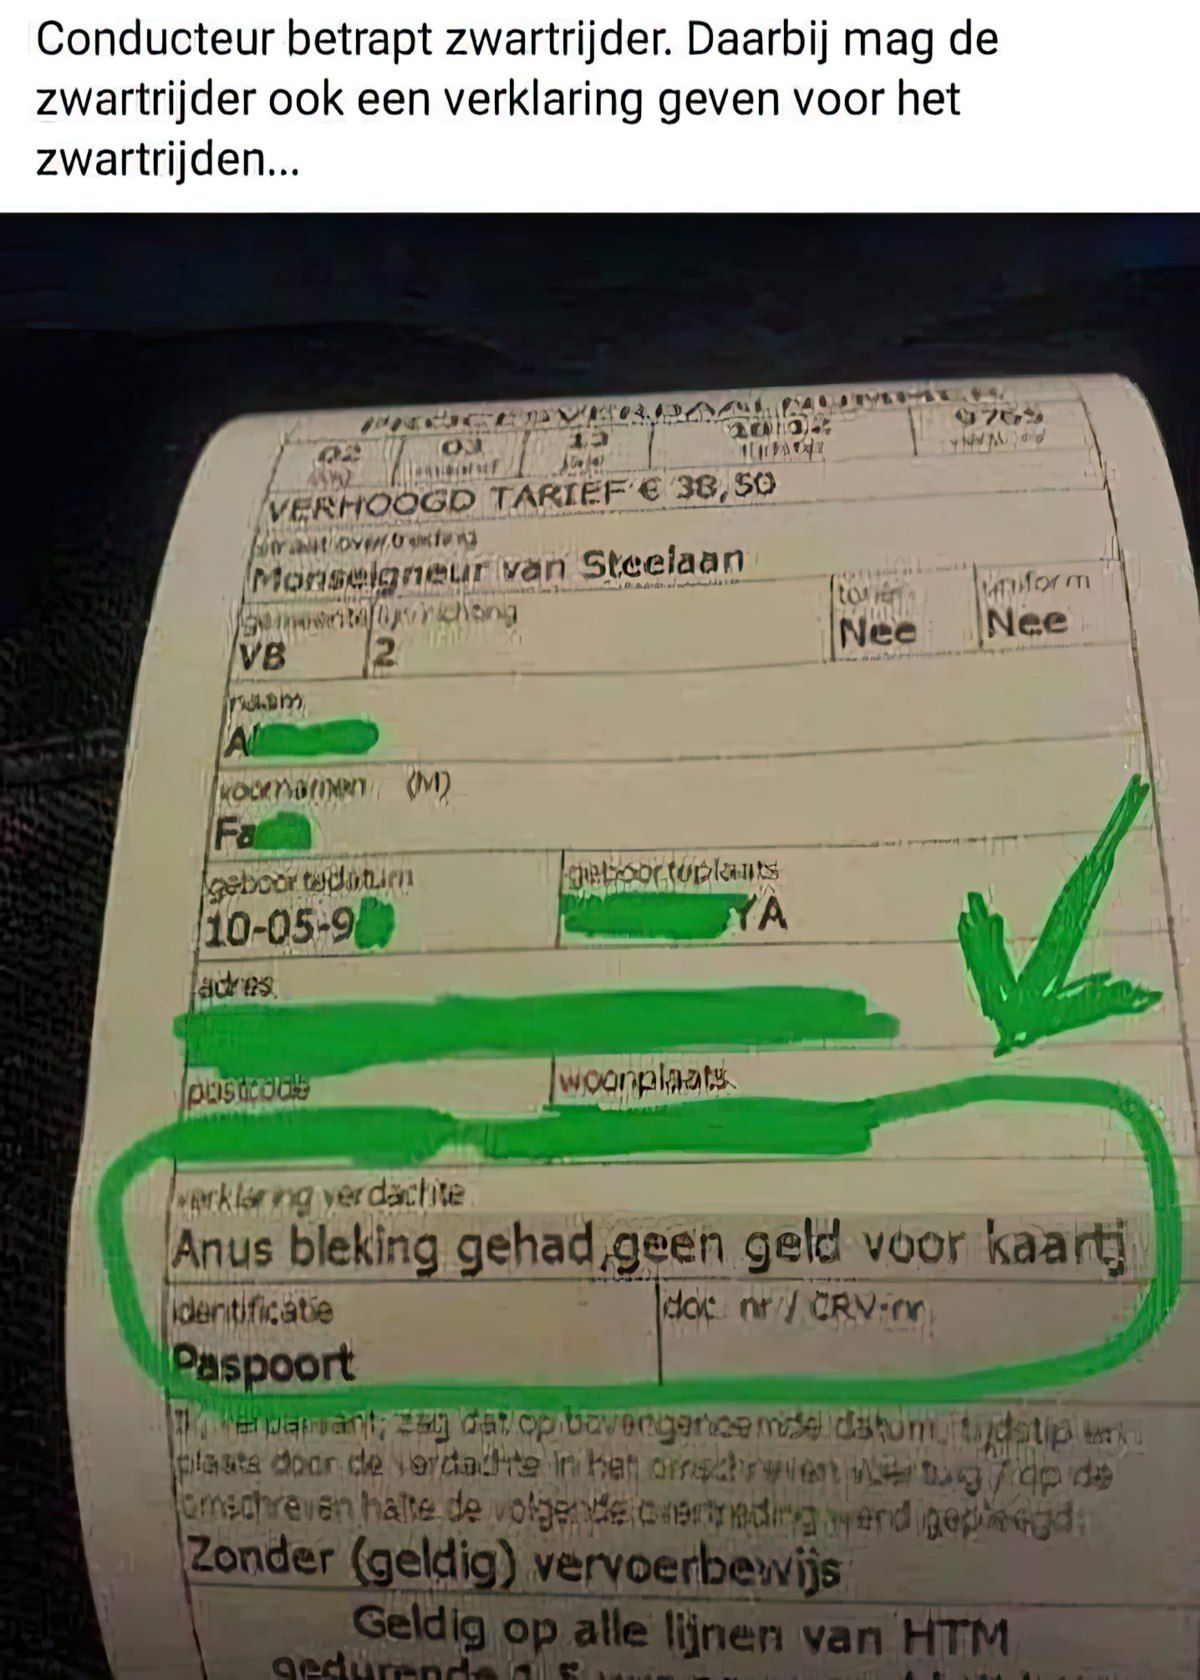 Conducteur betrapt zwartrijder. Daarbij mag de
zwartrijder ook een verklaring geven voor het
zwartrijden...
VERHOOGD TARIEF € 38,50
Monseigneur van Steelaan
uniform
VB 2 Nee Nee
naam
A
voornamen (M)
Fa
geboortedatum geboorteplaats
10-05-9 YA
adres
postcode woonplaats
verklaring verdachte
Anus bleking gehad,geen geld voor kaartj
identificatie doc nr / CRV-nr
Paspoort
zag dat op bovengenoemde datum, tijdstip en
plaats door de verdachte in het omschreven / op de
omschreven halte de volgende overtreding werd gepleegd
Zonder (geldig) vervoerbewijs
Geldig op alle lijnen van HTM
gedurende